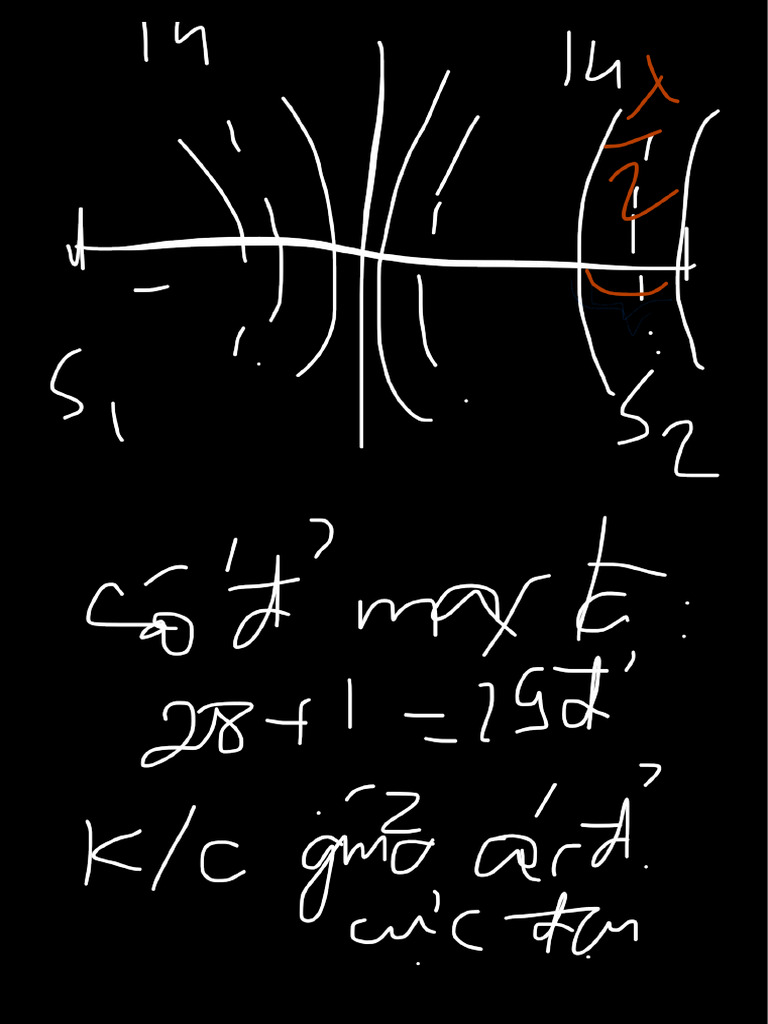 14 14
λ/2
S1 S2
Có đ' max t:
28 + 1 = 29đ'
K/c giữa
cực đại